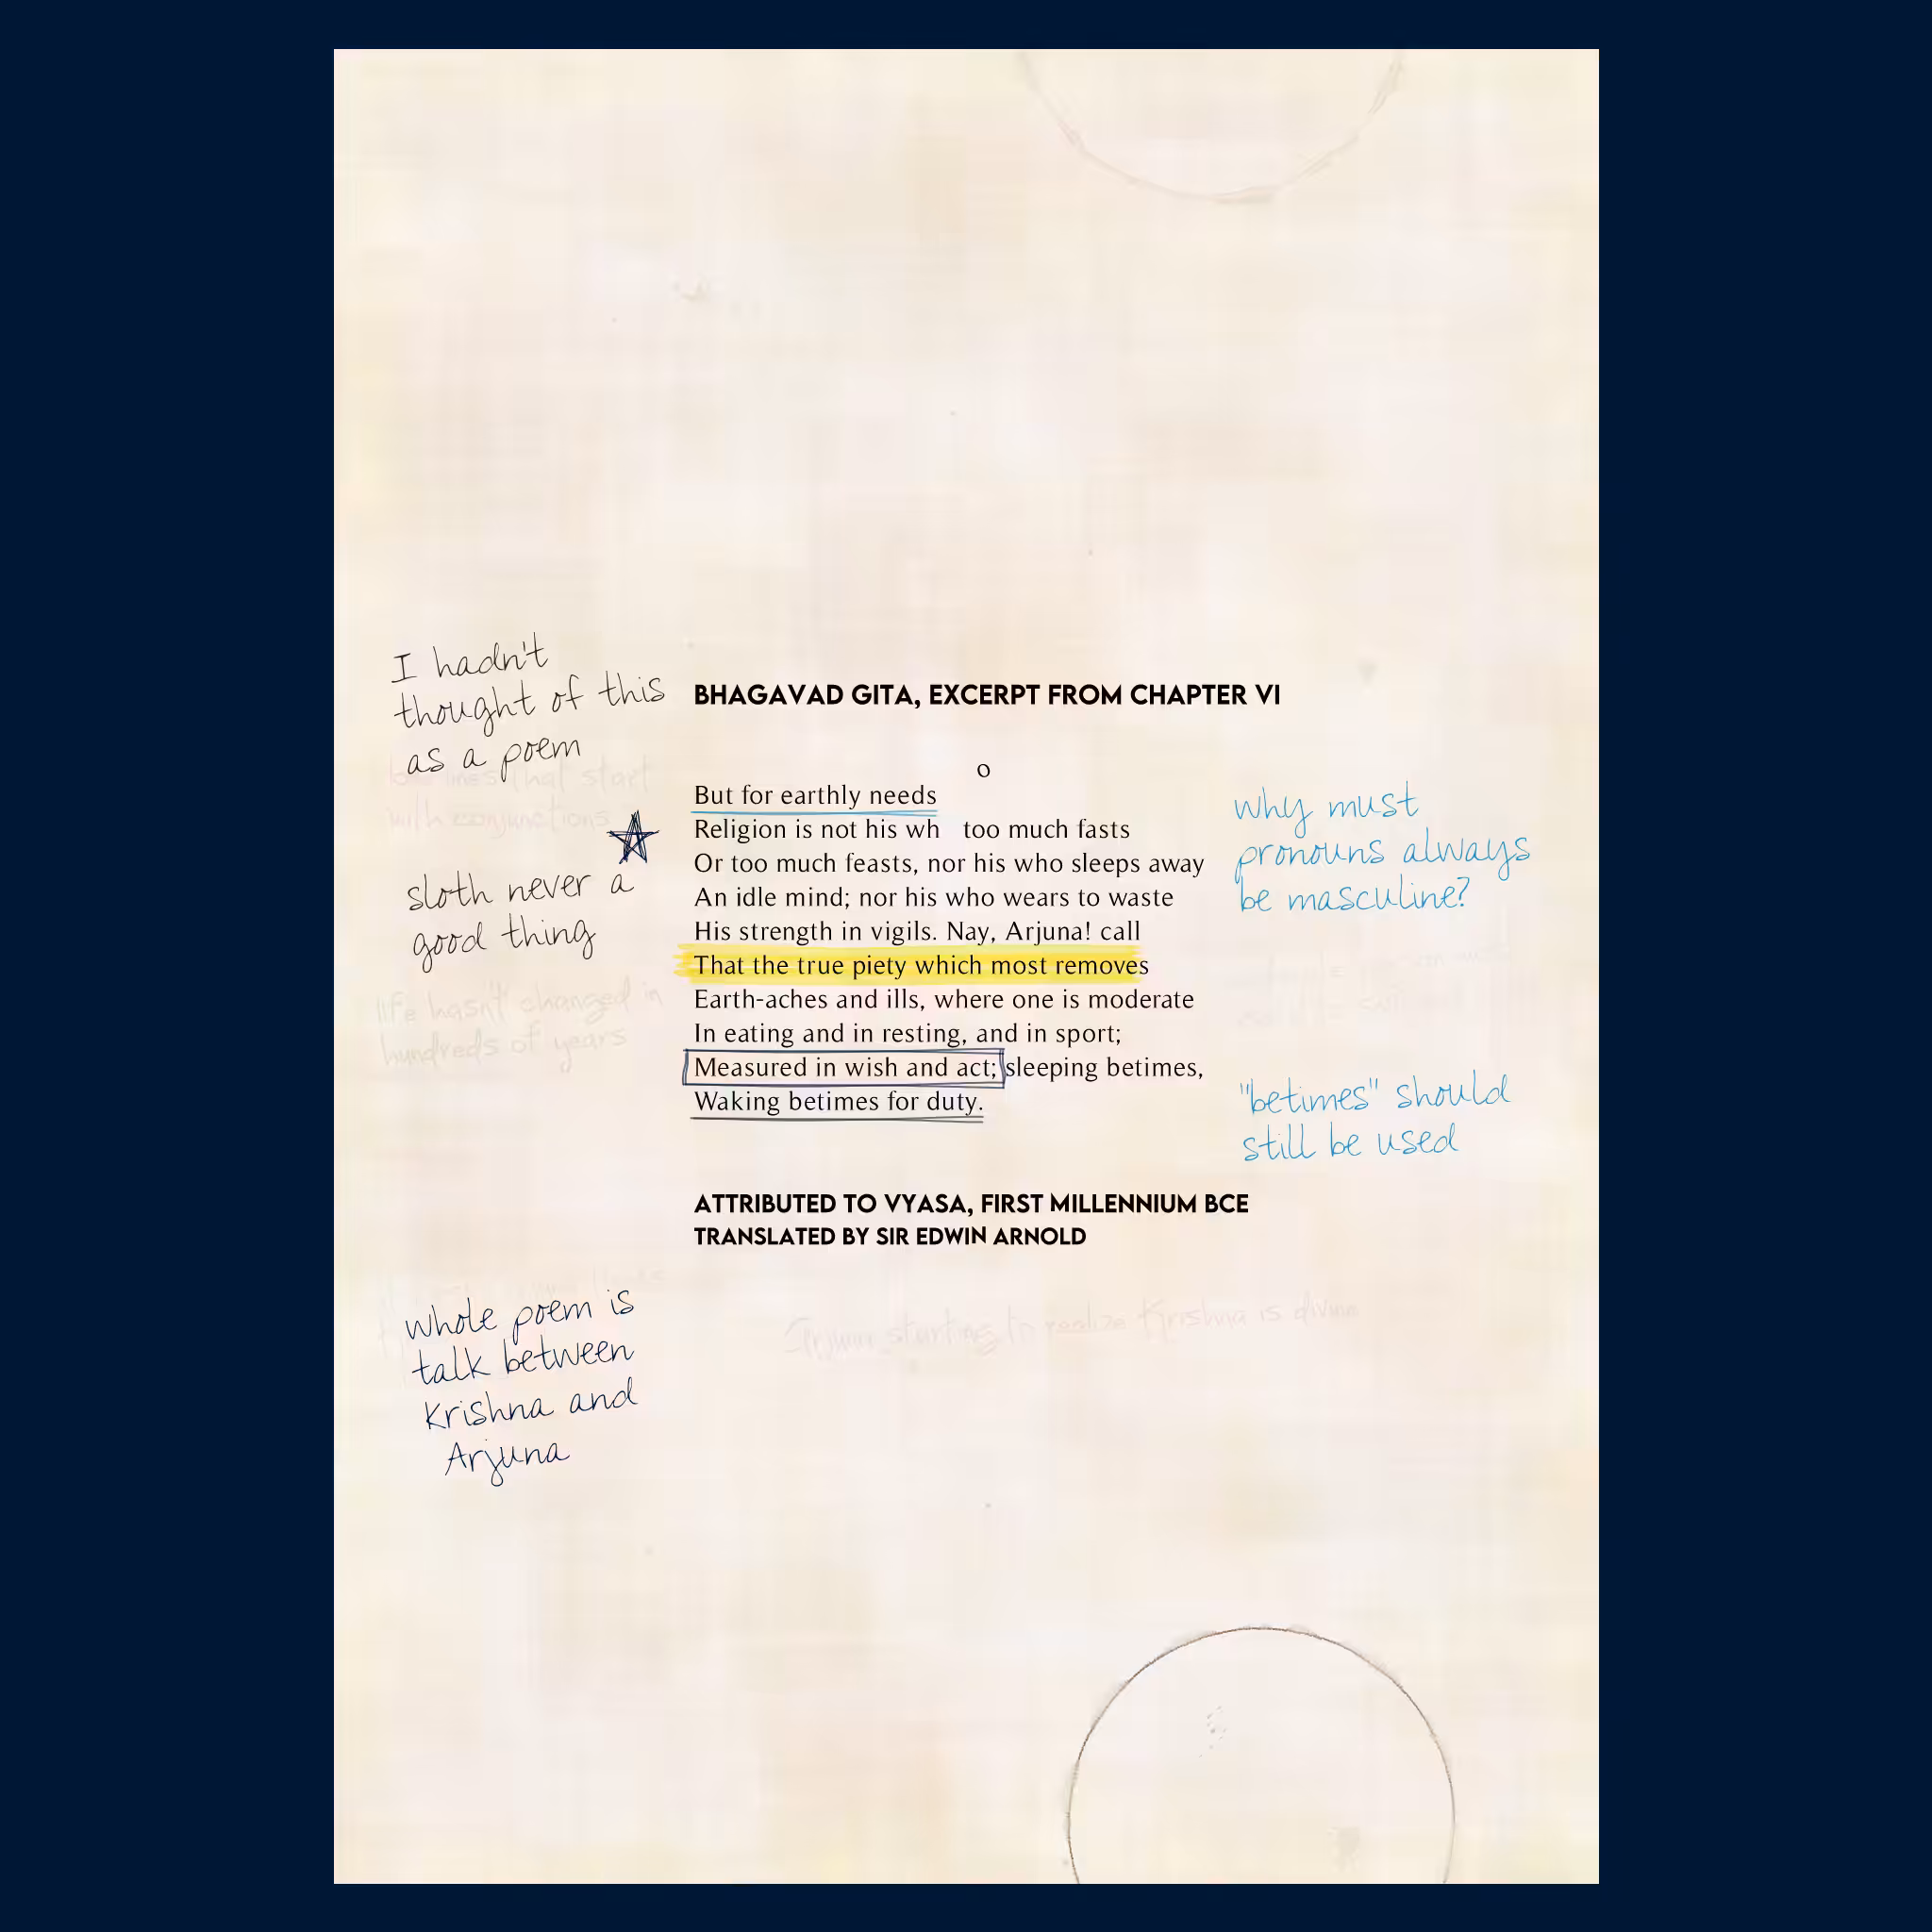 I hadn't
thought of this
as a poem
BHAGAVAD GITA, EXCERPT FROM CHAPTER VI
lines that start
with conjunctions
sloth never a
good thing
life hasn't changed in
hundreds of years
o
But for earthly needs
Religion is not his wh   too much fasts
Or too much feasts, nor his who sleeps away
An idle mind; nor his who wears to waste
His strength in vigils. Nay, Arjuna! call
That the true piety which most removes
Earth-aches and ills, where one is moderate
In eating and in resting, and in sport;
Measured in wish and act; sleeping betimes,
Waking betimes for duty.
why must
pronouns always
be masculine?
"betimes" should
still be used
ATTRIBUTED TO VYASA, FIRST MILLENNIUM BCE
TRANSLATED BY SIR EDWIN ARNOLD
whole poem is
talk between
Krishna and
Arjuna
starting to realize Krishna is divine